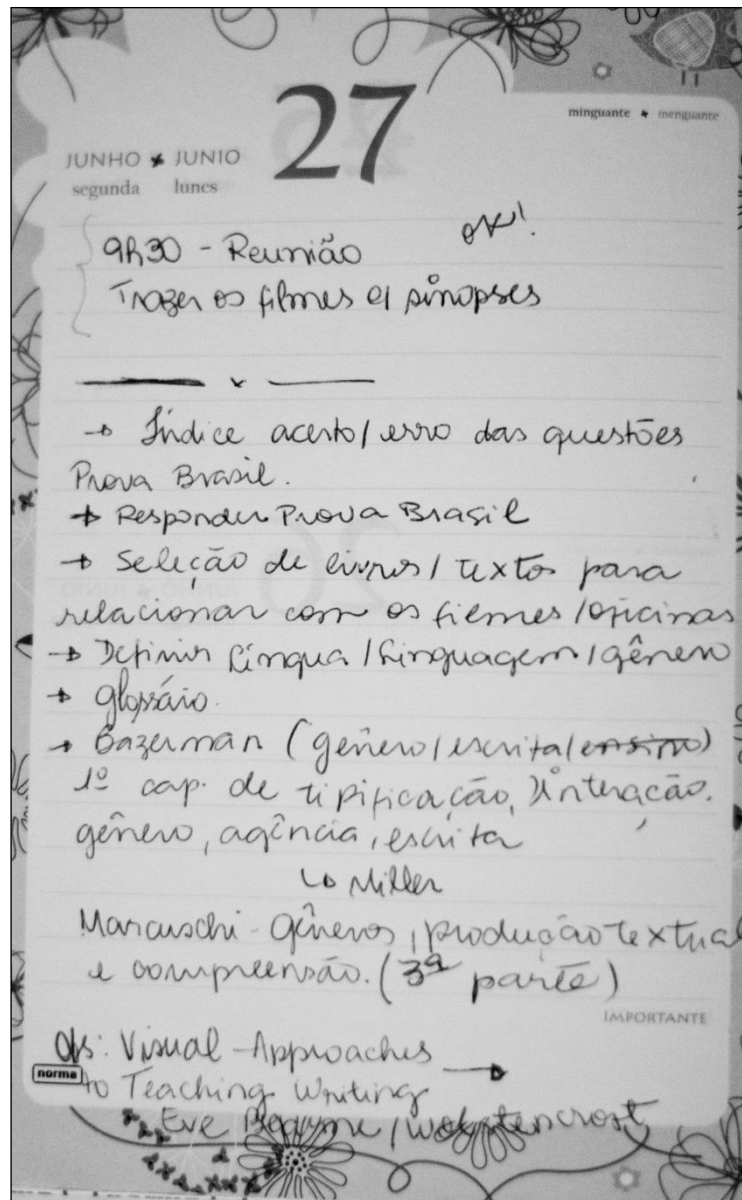 27
minguante menguante
JUNHO JUNIO
segunda lunes
9h30 - Reunião ok!
Trazer os filmes c/ sinopses
→ Índice acerto/erro das questões
Prova Brasil.
→ Responder Prova Brasil
→ Seleção de livros/textos para
relacionar com os filmes/oficinas
→ Definir língua/linguagem/gênero
→ glossário.
→ Bazerman (gênero/escrita/ensino)
1º cap. de tipificação, interação.
gênero, agência, escrita
↳ Miller
Marcuschi - Gêneros, produção textual
e compreensão. (3ª parte)
IMPORTANTE
obs: Visual - Approaches →
norma to Teaching Writing
Eve